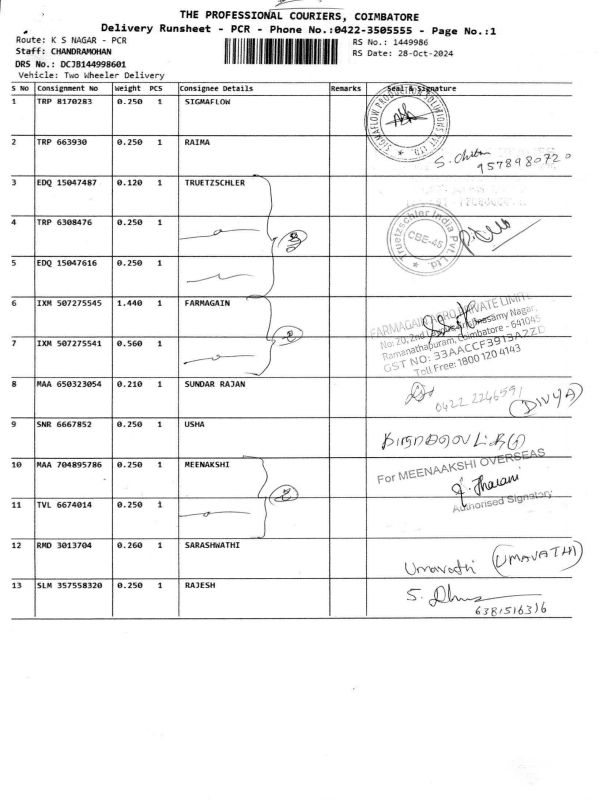 THE PROFESSIONAL COURIERS, COIMBATORE
Delivery Runsheet - PCR - Phone No.:0422-3505555 - Page No.:1
Route: K S NAGAR - PCR
RS No.: 1449986
Staff: CHANDRAMOHAN
RS Date: 28-Oct-2024
DRS No.: DCJB144998601
Vehicle: Two Wheeler Delivery
S No Consignment No Weight PCS Consignee Details Remarks Seal & Signature
1 TRP 8170283 0.250 1 SIGMAFLOW
SIGMAFLOW PRODUCTION SOLUTIONS PVT. LTD.
2 TRP 663930 0.250 1 RAIMA
9578980720
3 EDQ 15047487 0.120 1 TRUETZSCHLER
4 TRP 6308476 0.250 1
Truetzschler India Pvt. Ltd.
CBE-45
5 EDQ 15047616 0.250 1
6 IXM 507275545 1.440 1 FARMAGAIN
FARMAGAIN AGRO PRIVATE LIMITED
No: 20, 2nd Nagar,
Ramanathapuram, Coimbatore - 641045
GST NO: 33AACCF3913A2ZD
Toll Free: 1800 120 4143
7 IXM 507275541 0.560 1
8 MAA 650323054 0.210 1 SUNDAR RAJAN
0422 2246591
(DIVYA)
9 SNR 6667852 0.250 1 USHA
10 MAA 704895786 0.250 1 MEENAKSHI
For MEENAAKSHI OVERSEAS
Authorised Signatory
11 TVL 6674014 0.250 1
12 RMD 3013704 0.260 1 SARASHWATHI
Umavathi (UMAVATHI)
13 SLM 357558320 0.250 1 RAJESH
6381516316